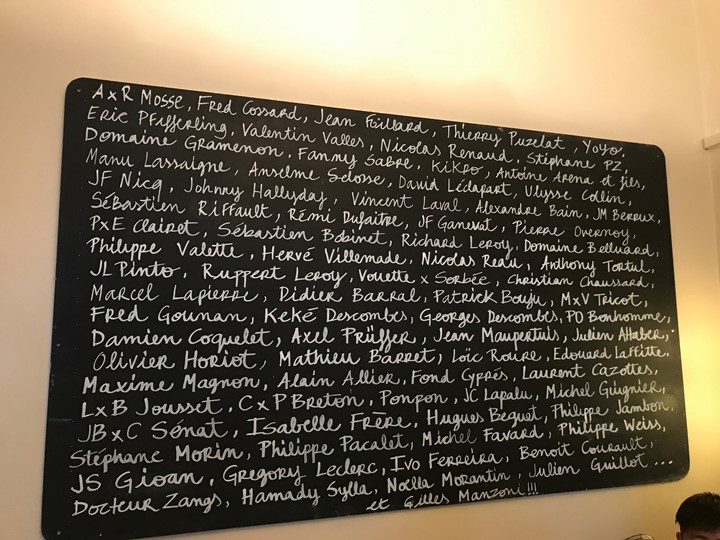 AxR Mosse, Fred Cossard, Jean Foillard, Thierry Puzelat, Yoyo,
Eric Pfifferling, Valentin Valles, Nicolas Renaud, Stéphane PZ,
Domaine Gramenon, Fanny Sabre, KiKÞo, Antoine Arena et fils,
Manu Lassaigne, Anselme Selosse, David Lédapart, Ulysse Collin,
JF Nicq, Johnny Hallyday, Vincent Laval, Alexandre Bain, JM Berrux,
Sébastien Riffault, Rémi Dufaitre, JF Ganevat, Pierre Overnoy,
PxE Clairet, Sébastien Bobinet, Richard Leroy, Domaine Belluard,
Philippe Valette, Hervé Villemade, Nicolas Reau, Anthony Tortul,
JL Pinto, Ruppert Leroy, Vouette x Sorbée, Christian Chaussard,
Marcel Lapierre, Didier Barral, Patrick Bouju, MxV Tricot,
Fred Gounan, Keké Descombes, Georges Descombes, PO Bonhomme,
Damien Coquelet, Axel Prüffer, Jean Maupertuis, Julien Altaber,
Olivier Horiot, Mathieu Barret, Loïc Roure, Edouard Laffitte,
Maxime Magnon, Alain Allier, Fond Cyprès, Laurent Cazottes,
LxB Jousset, CxP Breton, Ponpon, JC Lapalu, Michel Guignier,
JBxC Sénat, Isabelle Frère, Hugues Beguet, Philippe Jambon,
Stéphane Morin, Philippe Pacalet, Michel Favard, Philippe Weiss,
JS Gioan, Gregory Leclerc, Ivo Ferreira, Benoît Courault,
Docteur Zangs, Hamady Sylla, Noëlla Morantin, Julien Guillot ...
et Gilles Manzoni!!!